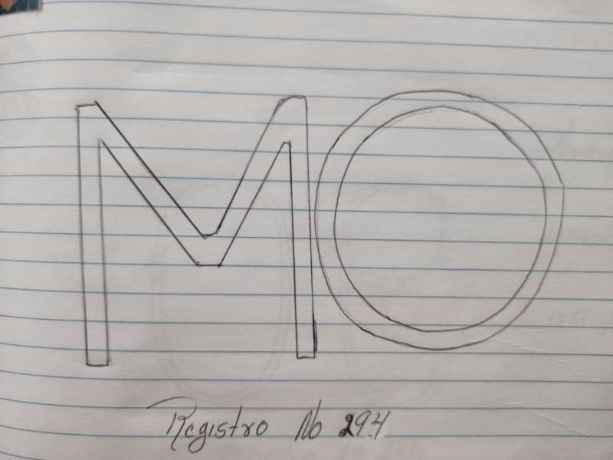 MO
Registro No 294